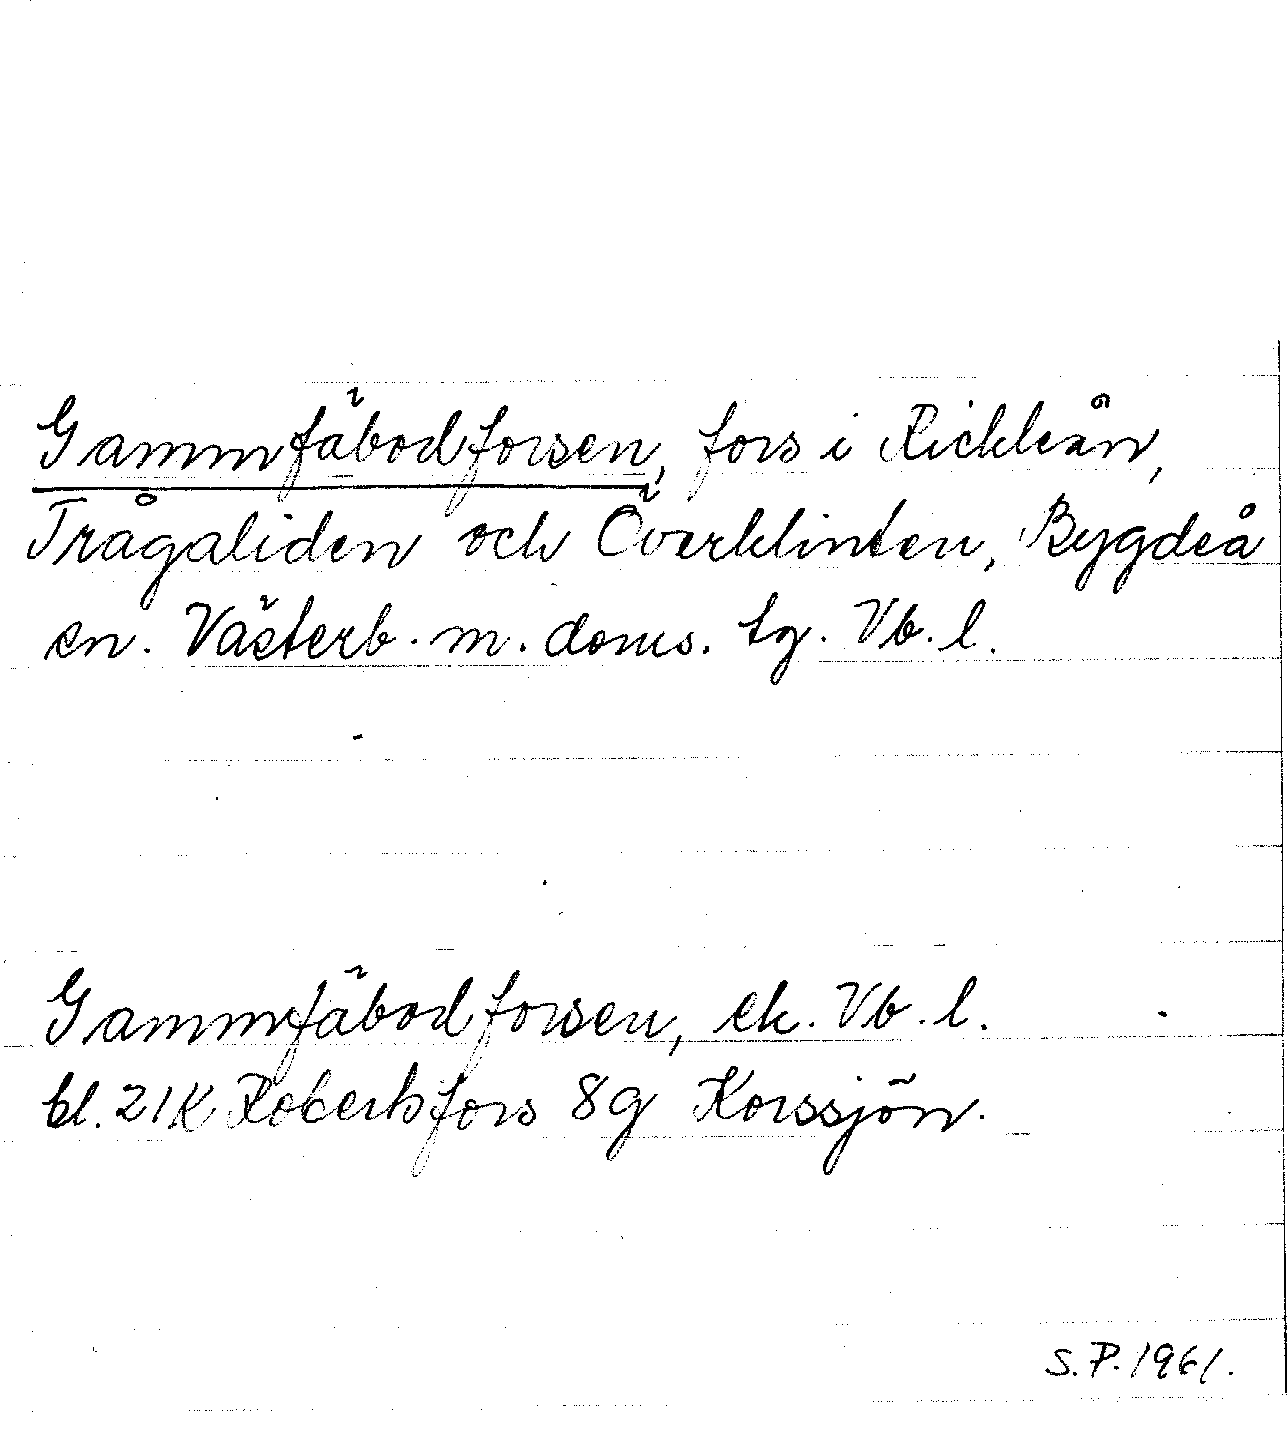 Gammfäbodforsen, fors i Rickleån,
Trågaliden och Överklinten, Bygdeå
sn. Västerb. m. doms. tg. Vb. l.
Gammfäbodforsen, ek. Vb. l.
bl. 21K Robertsfors 8g Korssjön.
S.P. 1961.